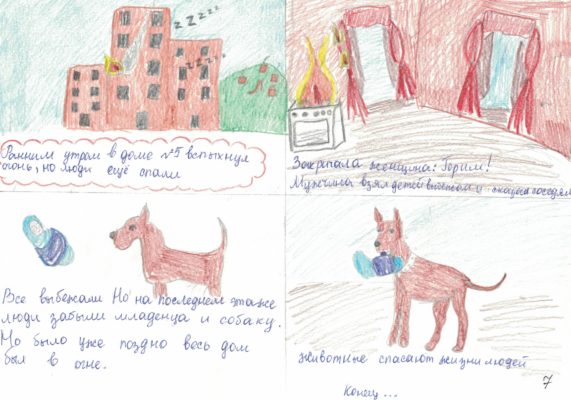 z z z z z
z z z z z
Ранним утром в доме №5 вспыхнул
огонь, но люди ещё спали
Закричала женщина: Горим!
Мужчина взял детей
соседям
Все выбежали Но на последнем этаже
люди забыли младенца и собаку.
Но было уже поздно весь дом
был в огне.
животные спасают жизни людей
Конец...
7